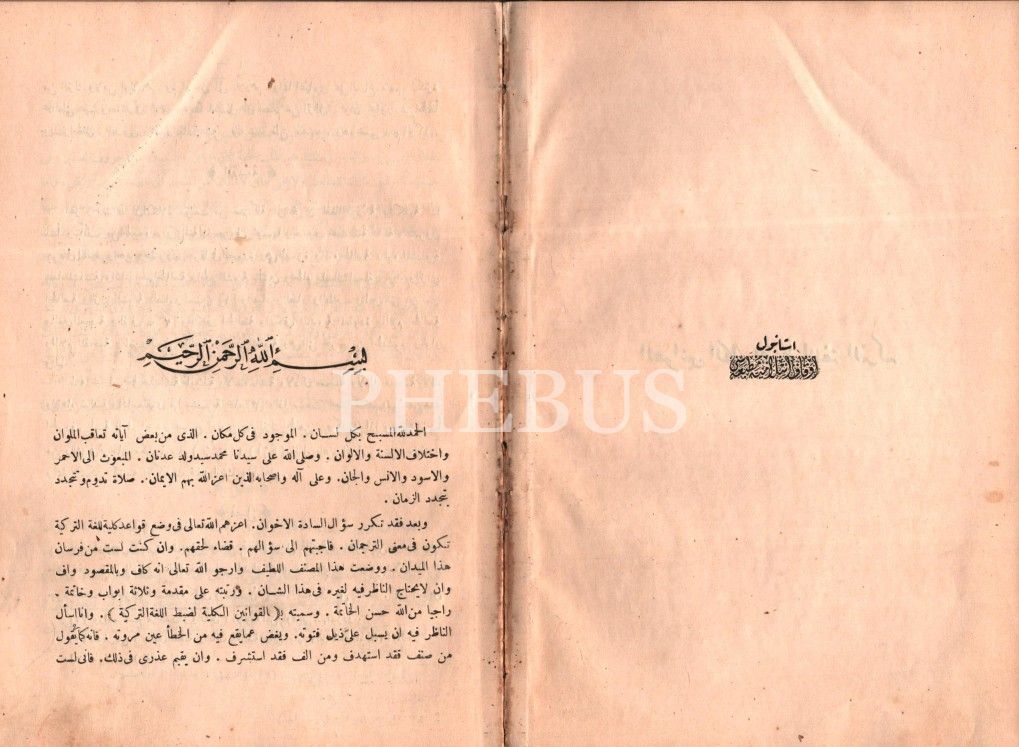 استانبول
اوقاف اسلامیه مطبعه‌سی
بسم الله الرحمن الرحيم
الحمدلله المسبح بكل لسان . الموجود فى كل مكان . الذى من بعض آياته تعاقب الملوان
واختلاف الالسنة والالوان . وصلى الله على سيدنا محمد سيد ولد عدنان . المبعوث الى الاحمر
والاسود والانس والجان. وعلى آله واصحابه الذين اعز الله بهم الايمان. صلاة تدوم وتتجدد
بتجدد الزمان .
وبعد فقد تكرر سؤال السادة الاخوان . اعزهم الله تعالى فى وضع قواعد كلية للغة التركية
تكون فى معنى الترجمان . فاجبتهم الى سؤالهم . قضاء لحقهم. وان كنت لست من فرسان
هذا الميدان . ووضعت هذا المصنف اللطيف وارجو الله تعالى انه كاف وبالمقصود واف
وان لايحتاج الناظر فيه لغيره فى هذا الشان . ورتبته على مقدمة وثلاثة ابواب وخاتمة .
راجيا من الله حسن الخاتمة . وسميته بـ(القوانين الكلية لضبط اللغة التركية) . وانا اسأل
الناظر فيه ان يسبل على ذيل فتوته. ويغض عما يقع فيه من الخطأ عين مروته . فانه كما يقول
من صنف فقد استهدف ومن الف فقد استشرف . وان يقيم عذرى فى ذلك. فانى لست
PHEBUS